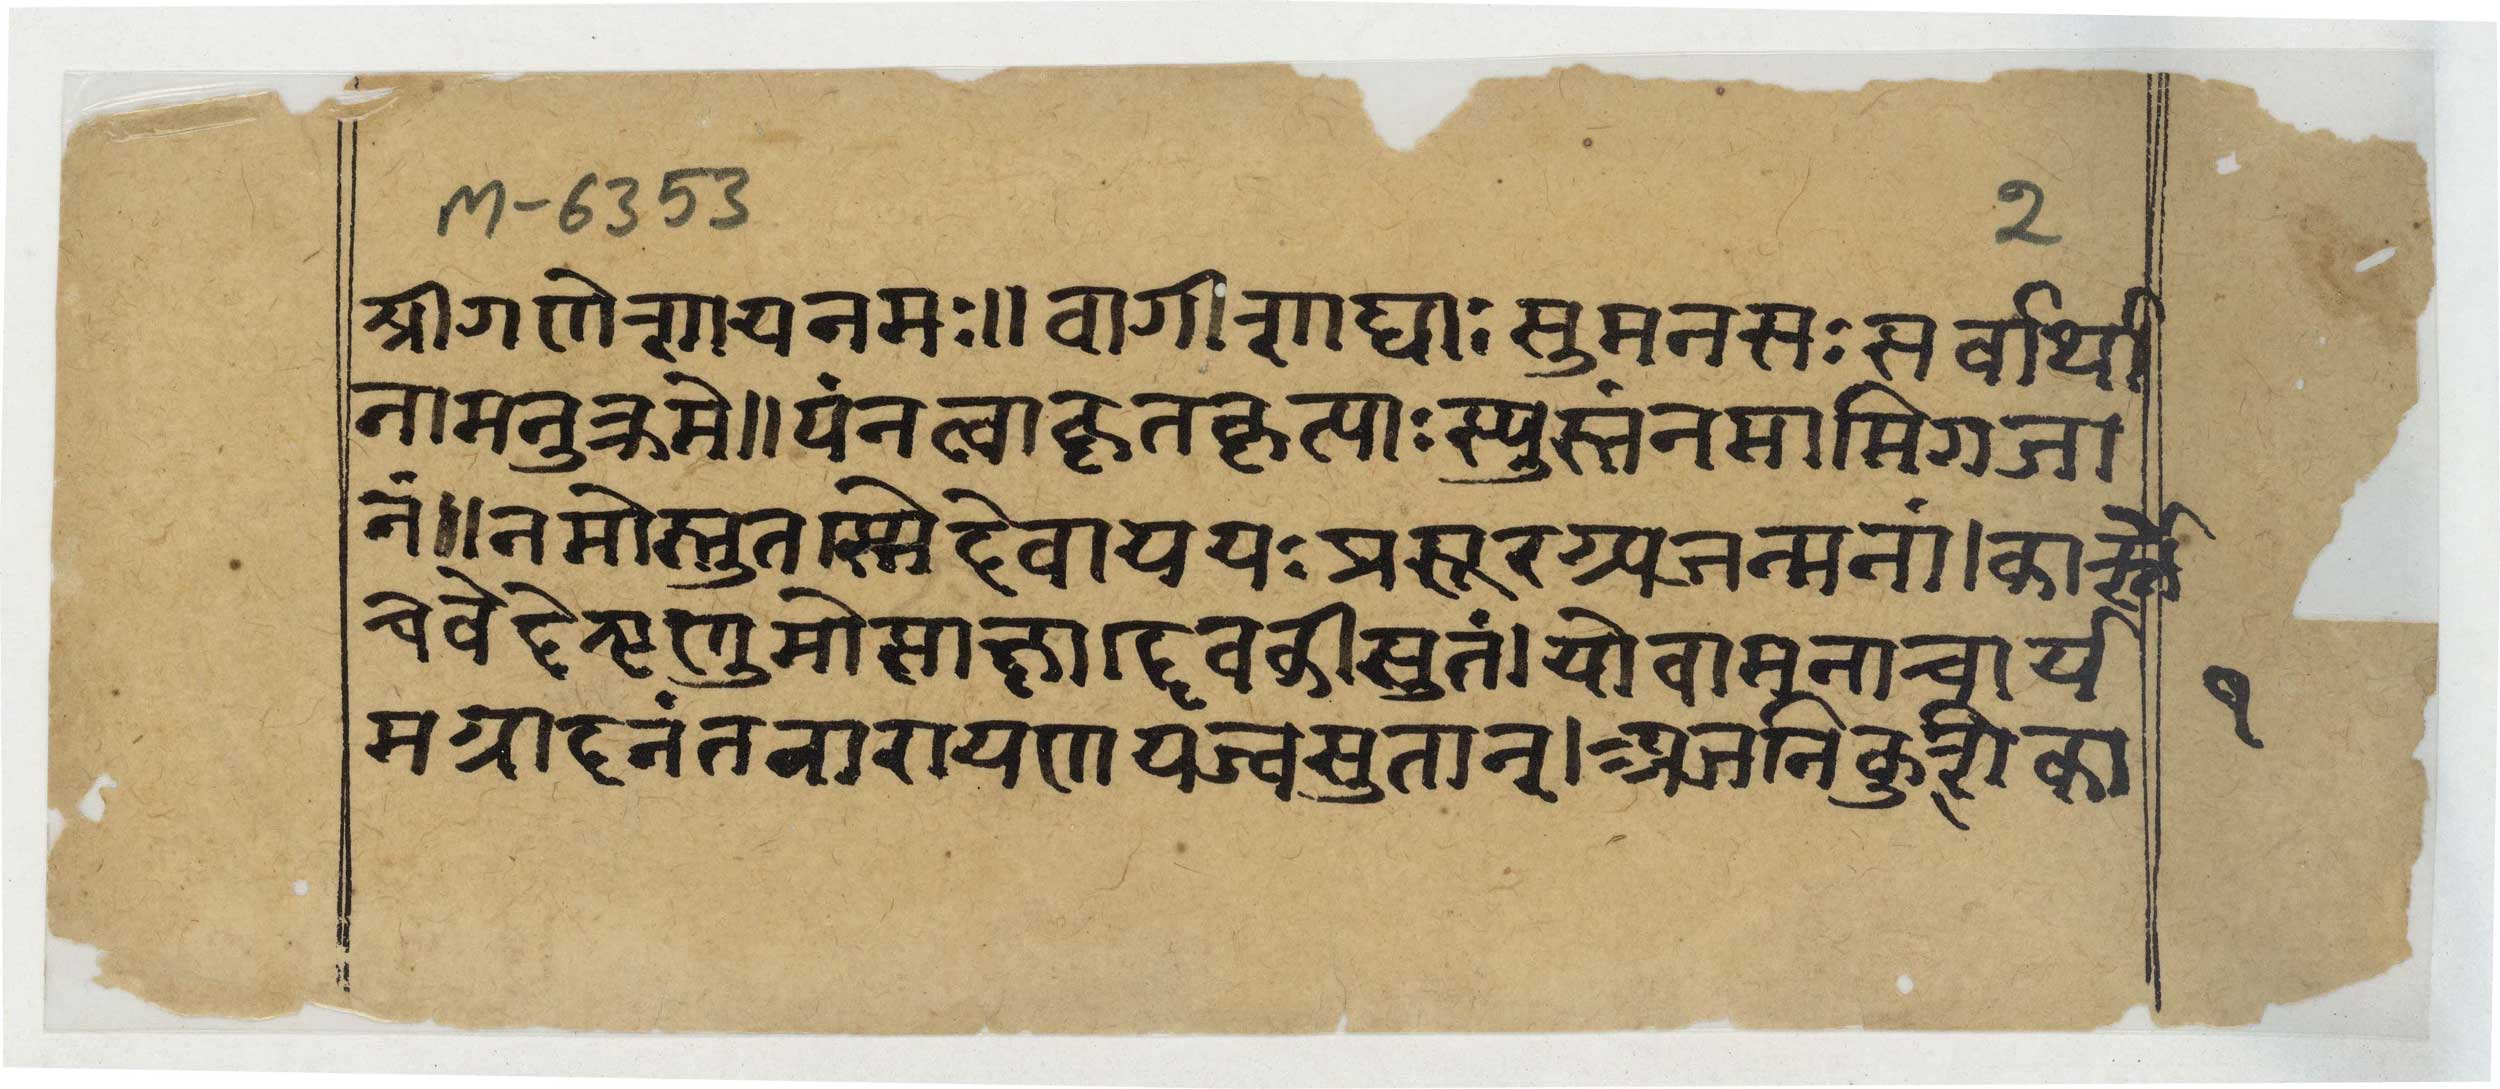 M-6353
2
श्रीगणेशायनमः॥वागीशाद्याः सुमनसः सर्वार्था
नामनुक्रमे॥यंनत्वाकृतकृत्याःस्युस्तंनमामिगजा
नं॥नमोस्तुतस्मैदेवाययः प्रसूरग्र्यजन्मनां।का
चेवेदेऋणुमोसाक्षाद्देवकीसुतं।योवामनाचार्य
मग्रादनंतनारायणयज्वसुतान्।अजनि
१